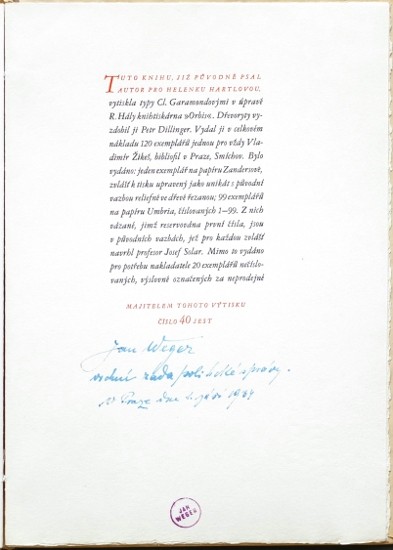 TUTO KNIHU, JIŽ PŮVODNĚ PSAL
AUTOR PRO HELENKU HARTLOVOU,
vytiskla typy Cl. Garamondovými v úpravě
R. Hály knihtiskárna »Orbis«. Dřevoryty vy-
zdobil ji Petr Dillinger. Vydal ji v celkovém
nákladu 120 exemplářů jednou pro vždy Vla-
dimír Žikeš, bibliofil v Praze, Smíchov. Bylo
vydáno: jeden exemplář na papíru Zandersově,
zvlášť k tisku upravený jako unikát s původní
vazbou reliefně ve dřevě řezanou; 99 exemplářů
na papíru Umbria, číslovaných 1–99. Z nich
vázané, jimž reservována první čísla, jsou
v původních vazbách, jež pro každou zvlášť
navrhl profesor Josef Solar. Mimo to vydáno
pro potřebu nakladatele 20 exemplářů nečíslo-
vaných, výslovně označených za neprodejné
MAJITELEM TOHOTO VÝTISKU
ČÍSLO 40 JEST
Jan Weger
vrchní rada politické správy.
V Praze dne září
JAN
WEGER